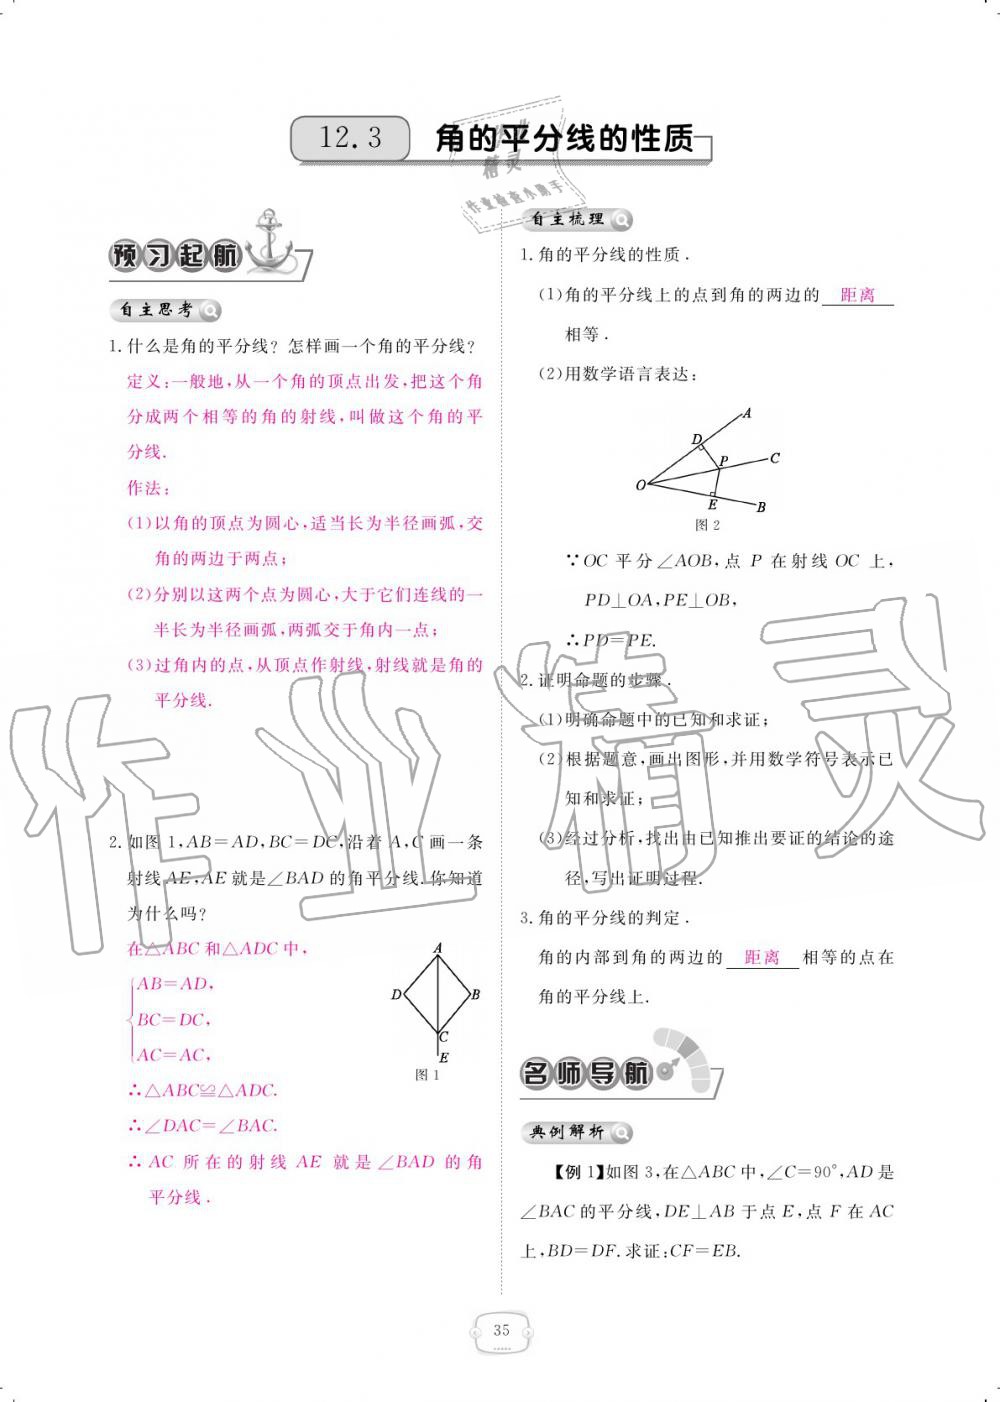 12.3 角的平分线的性质
作业
精灵
作业检查小助手
预习起航
自主思考
1.什么是角的平分线？怎样画一个角的平分线？
定义:一般地,从一个角的顶点出发,把这个角
分成两个相等的角的射线,叫做这个角的平
分线.
作法:
(1)以角的顶点为圆心,适当长为半径画弧,交
角的两边于两点;
(2)分别以这两个点为圆心,大于它们连线的一
半长为半径画弧,两弧交于角内一点;
(3)过角内的点,从顶点作射线,射线就是角的
平分线.
2.如图 1,AB=AD,BC=DC,沿着 A,C 画一条
射线 AE,AE 就是∠BAD 的角平分线.你知道
为什么吗?
在△ABC 和△ADC 中,
AB=AD,
BC=DC,
AC=AC,
∴△ABC≌△ADC.
∴∠DAC=∠BAC.
∴ AC 所在的射线 AE 就是∠BAD 的角
平分线.
A
D
B
C
E
图 1
自主梳理
1.角的平分线的性质.
(1)角的平分线上的点到角的两边的 距离
相等.
(2)用数学语言表达:
A
D
P
C
O
E
B
图 2
∵OC 平分∠AOB,点 P 在射线 OC 上,
PD⊥OA,PE⊥OB,
∴PD=PE.
2.证明命题的步骤.
(1)明确命题中的已知和求证;
(2)根据题意,画出图形,并用数学符号表示已
知和求证;
(3)经过分析,找出由已知推出要证的结论的途
径,写出证明过程.
3.角的平分线的判定.
角的内部到角的两边的 距离 相等的点在
角的平分线上.
名师导航
典例解析
【例 1】如图 3,在△ABC 中,∠C=90°,AD 是
∠BAC 的平分线,DE⊥AB 于点 E,点 F 在 AC
上,BD=DF.求证:CF=EB.
作业精灵
35